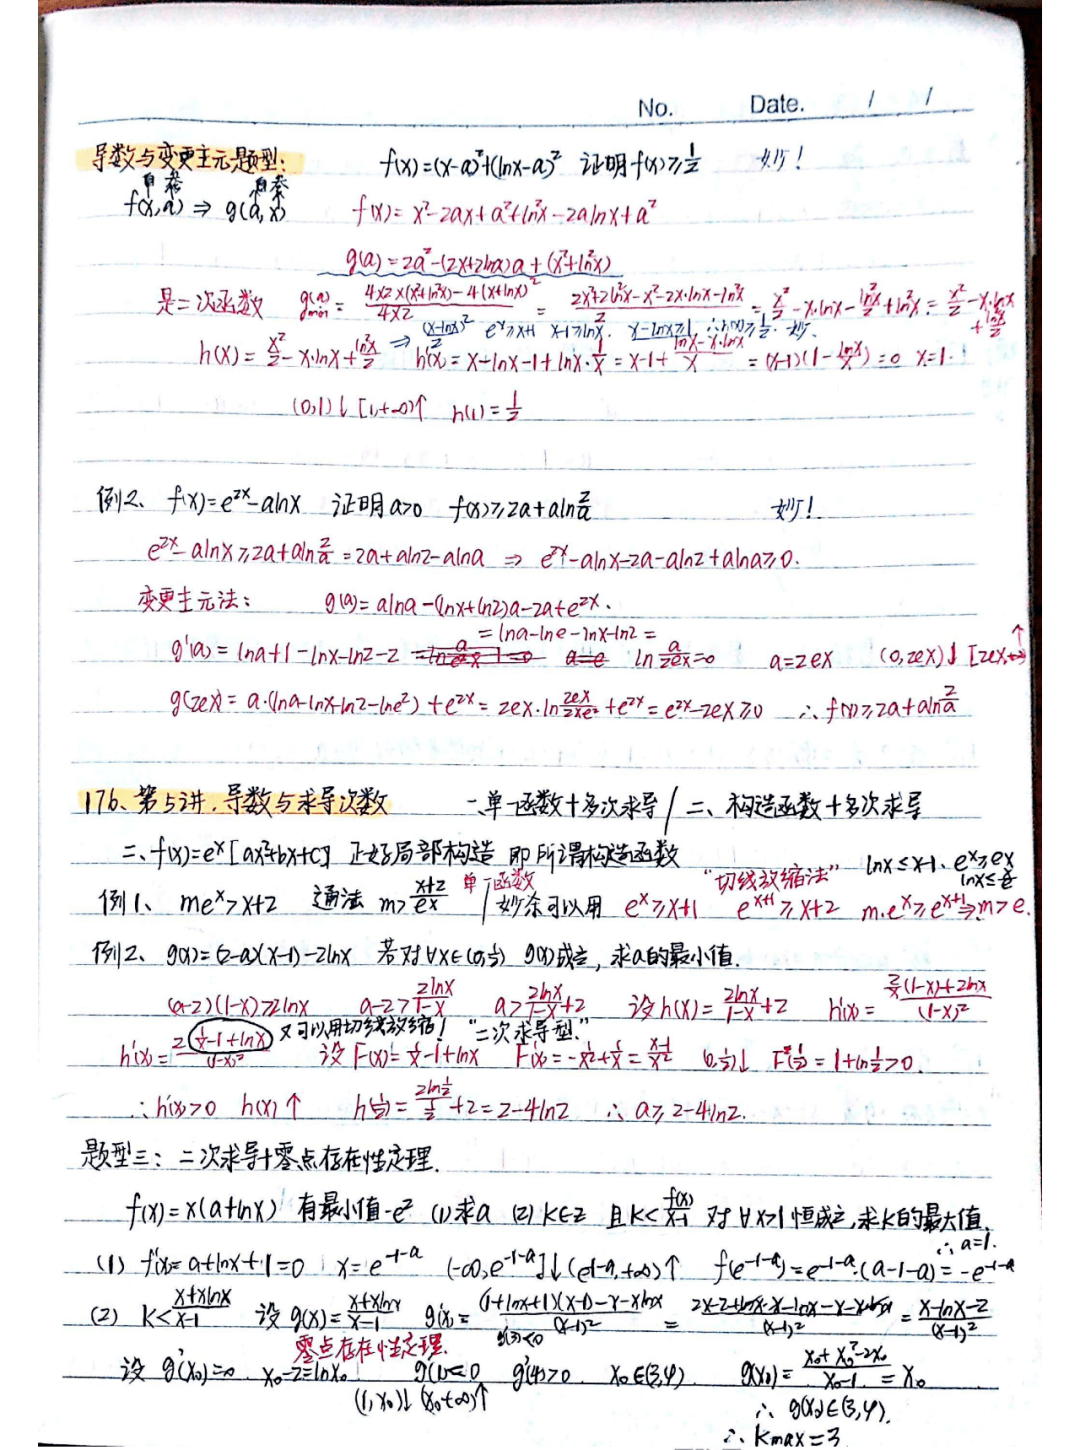 No. Date. / /
导数与变更主元题型: f(x)=(x-a)²+(lnx-a)² 证明f(x)≥1/2 妙!
自 参 自 参
f(x,a) ⇒ g(a,x) f(x)= x²-2ax+a²+ln²x-2alnx+a²
g(a)=2a²-(2x+2lnx)a+(x²+ln²x)
是二次函数 g(a)min = (4×2×(x²+ln²x)-4(x+lnx)²)/(4×2) = (2x²+2ln²x-x²-2x·lnx-ln²x)/2 = x²/2 - x·lnx - ln²x/2 + ln²x = x²/2 - x·lnx + ln²x/2
⇒ (x-lnx)²/2 e^x≥x+1 x-1≥lnx. x-lnx≥1, ∴h(x)≥1/2. 妙.
h(x)= x²/2 - x·lnx + ln²x/2 h'(x)= x-lnx-1+lnx·1/x = x-1+ (lnx-x·lnx)/x = (x-1)(1-lnx/x)=0 x=1.
(0,1)↓ [1,+∞)↑ h(1)=1/2
例2、 f(x)=e^2x-alnx 证明a>0 f(x)≥2a+aln2/a 妙!
e^2x-alnx≥2a+aln2/a=2a+aln2-alna ⇒ e^2x-alnx-2a-aln2+alna≥0.
变更主元法: g(a)=alna-(lnx+ln2)a-2a+e^2x.
=lna-lne-lnx-ln2=
g'(a)= lna+1-lnx-ln2-2 a=e ln a/2ex=0 a=2ex (0,2ex)↓ [2ex,+∞)↑
g(2ex)= a·(lna-lnx-ln2-lne²)+e^2x= 2ex·ln 2ex/2xe²+e^2x= e^2x-2ex≥0 ∴f(x)≥2a+aln2/a
176、第5讲.导数与求导次数 一.单一函数+多次求导/二、构造函数+多次求导
二、f(x)=e^x[ax²+bx+c] 正好局部构造 即所谓构造函数
单一函数 “切线放缩法” lnx≤x-1. e^x≥ex lnx≤x/e
例1、 me^x>x+2 通法 m>(x+2)/e^x / 妙杀可以用 e^x≥x+1 e^(x+1)≥x+2 m·e^x≥e^(x+1)⇒m>e.
例2、 g(x)=(2-a)(x-1)-2lnx 若对∀x∈(0,1/2) g(x)成立, 求a的最小值.
(a-2)(1-x)≥2lnx a-2>2lnx/(1-x) a>2lnx/(1-x)+2 设h(x)=2lnx/(1-x)+2 h'(x)= (2/x(1-x)+2lnx)/(1-x)²
h'(x)= 2(1/x-1+lnx)/(1-x)² 又可以用切线放缩! “二次求导型.”
设F(x)=1/x-1+lnx F'(x)=-1/x²+1/x=(x-1)/x² (0,1/2)↓ F(1/2)=1+ln1/2>0.
∴h'(x)>0 h(x)↑ h(1/2)= 2ln1/2 / 1/2 +2=2-4ln2 ∴a≥2-4ln2.
题型三: 二次求导+零点存在性定理.
f(x)=x(a+lnx) 有最小值-e² (1)求a (2)K∈Z 且K<f(x)/(x-1) 对∀x>1恒成立,求K的最大值.
∴a=1.
(1) f'(x)=a+lnx+1=0 x=e^(-1-a) (-∞,e^(-1-a)]↓(e^(-1-a),+∞)↑ f(e^(-1-a))=e^(-1-a)·(a-1-a)=-e^(-1-a)
(2) K<(x+xlnx)/(x-1) 设g(x)=(x+xlnx)/(x-1) g'(x)= ((1+lnx+1)(x-1)-x-xlnx)/(x-1)² = (2x-2+xlnx-lnx-x-xlnx)/(x-1)² = (x-lnx-2)/(x-1)²
零点存在性定理. g'(3)<0
设g'(x₀)=0 x₀-2=lnx₀ g'(1)<0 g'(4)>0 x₀∈(3,4) g(x₀)= (x₀+x₀²-2x₀)/(x₀-1) = x₀
(1,x₀)↓ (x₀,+∞)↑ ∴ g(x₀)∈(3,4).
∴ Kmax=3